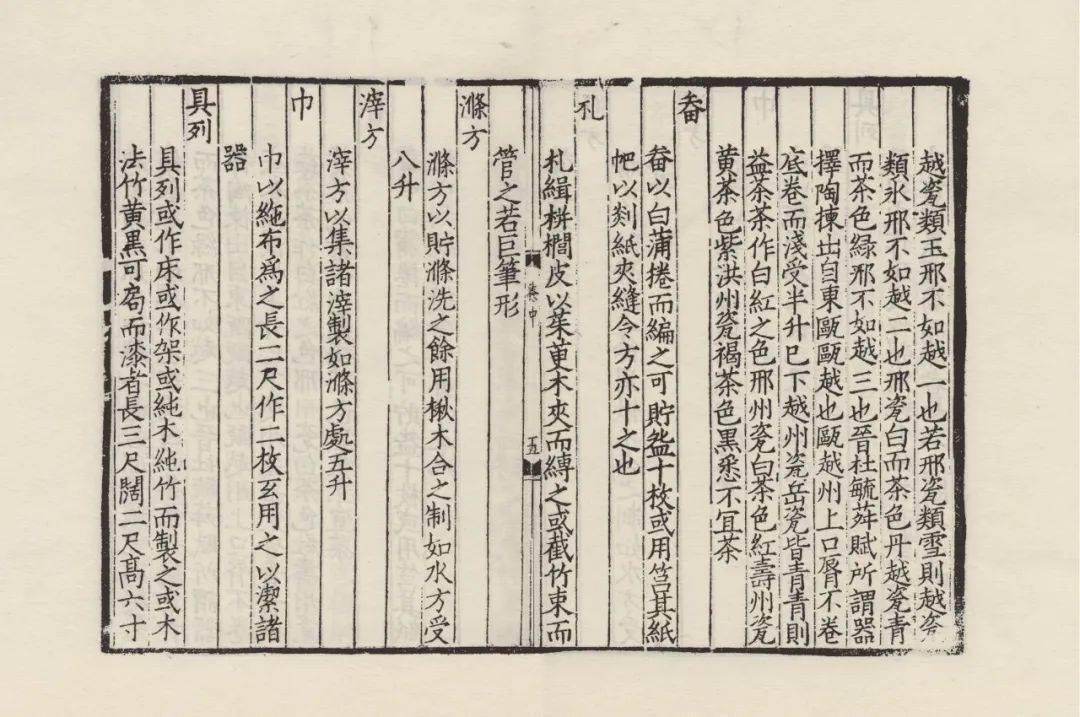 越瓷類玉邢不如越一也若邢瓷類雪則越瓷
類氷邢不如越二也邢瓷白而茶色丹越瓷青
而茶色緑邢不如越三也晉杜毓荈賦所謂器
擇陶揀出自東甌甌越也甌越州上口脣不卷
底卷而淺受半升已下越州瓷岳瓷皆青青則
益茶茶作白紅之色邢州瓷白茶色紅壽州瓷
黄茶色紫洪州瓷褐茶色黑悉不宜茶
畚
畚以白蒲捲而編之可貯盌十枚或用筥其紙
帊以剡紙夾縫令方亦十之也
札
札緝栟櫚皮以茱萸木夾而縛之或截竹束而
卷中
五
管之若巨筆形
滌方
滌方以貯滌洗之餘用楸木合之制如水方受
八升
滓方
滓方以集諸滓製如滌方處五升
巾
巾以絁布爲之長二尺作二枚玄用之以潔諸
器
具列
具列或作床或作架或純木純竹而製之或木
法竹黄黑可扃而漆者長三尺闊二尺髙六寸